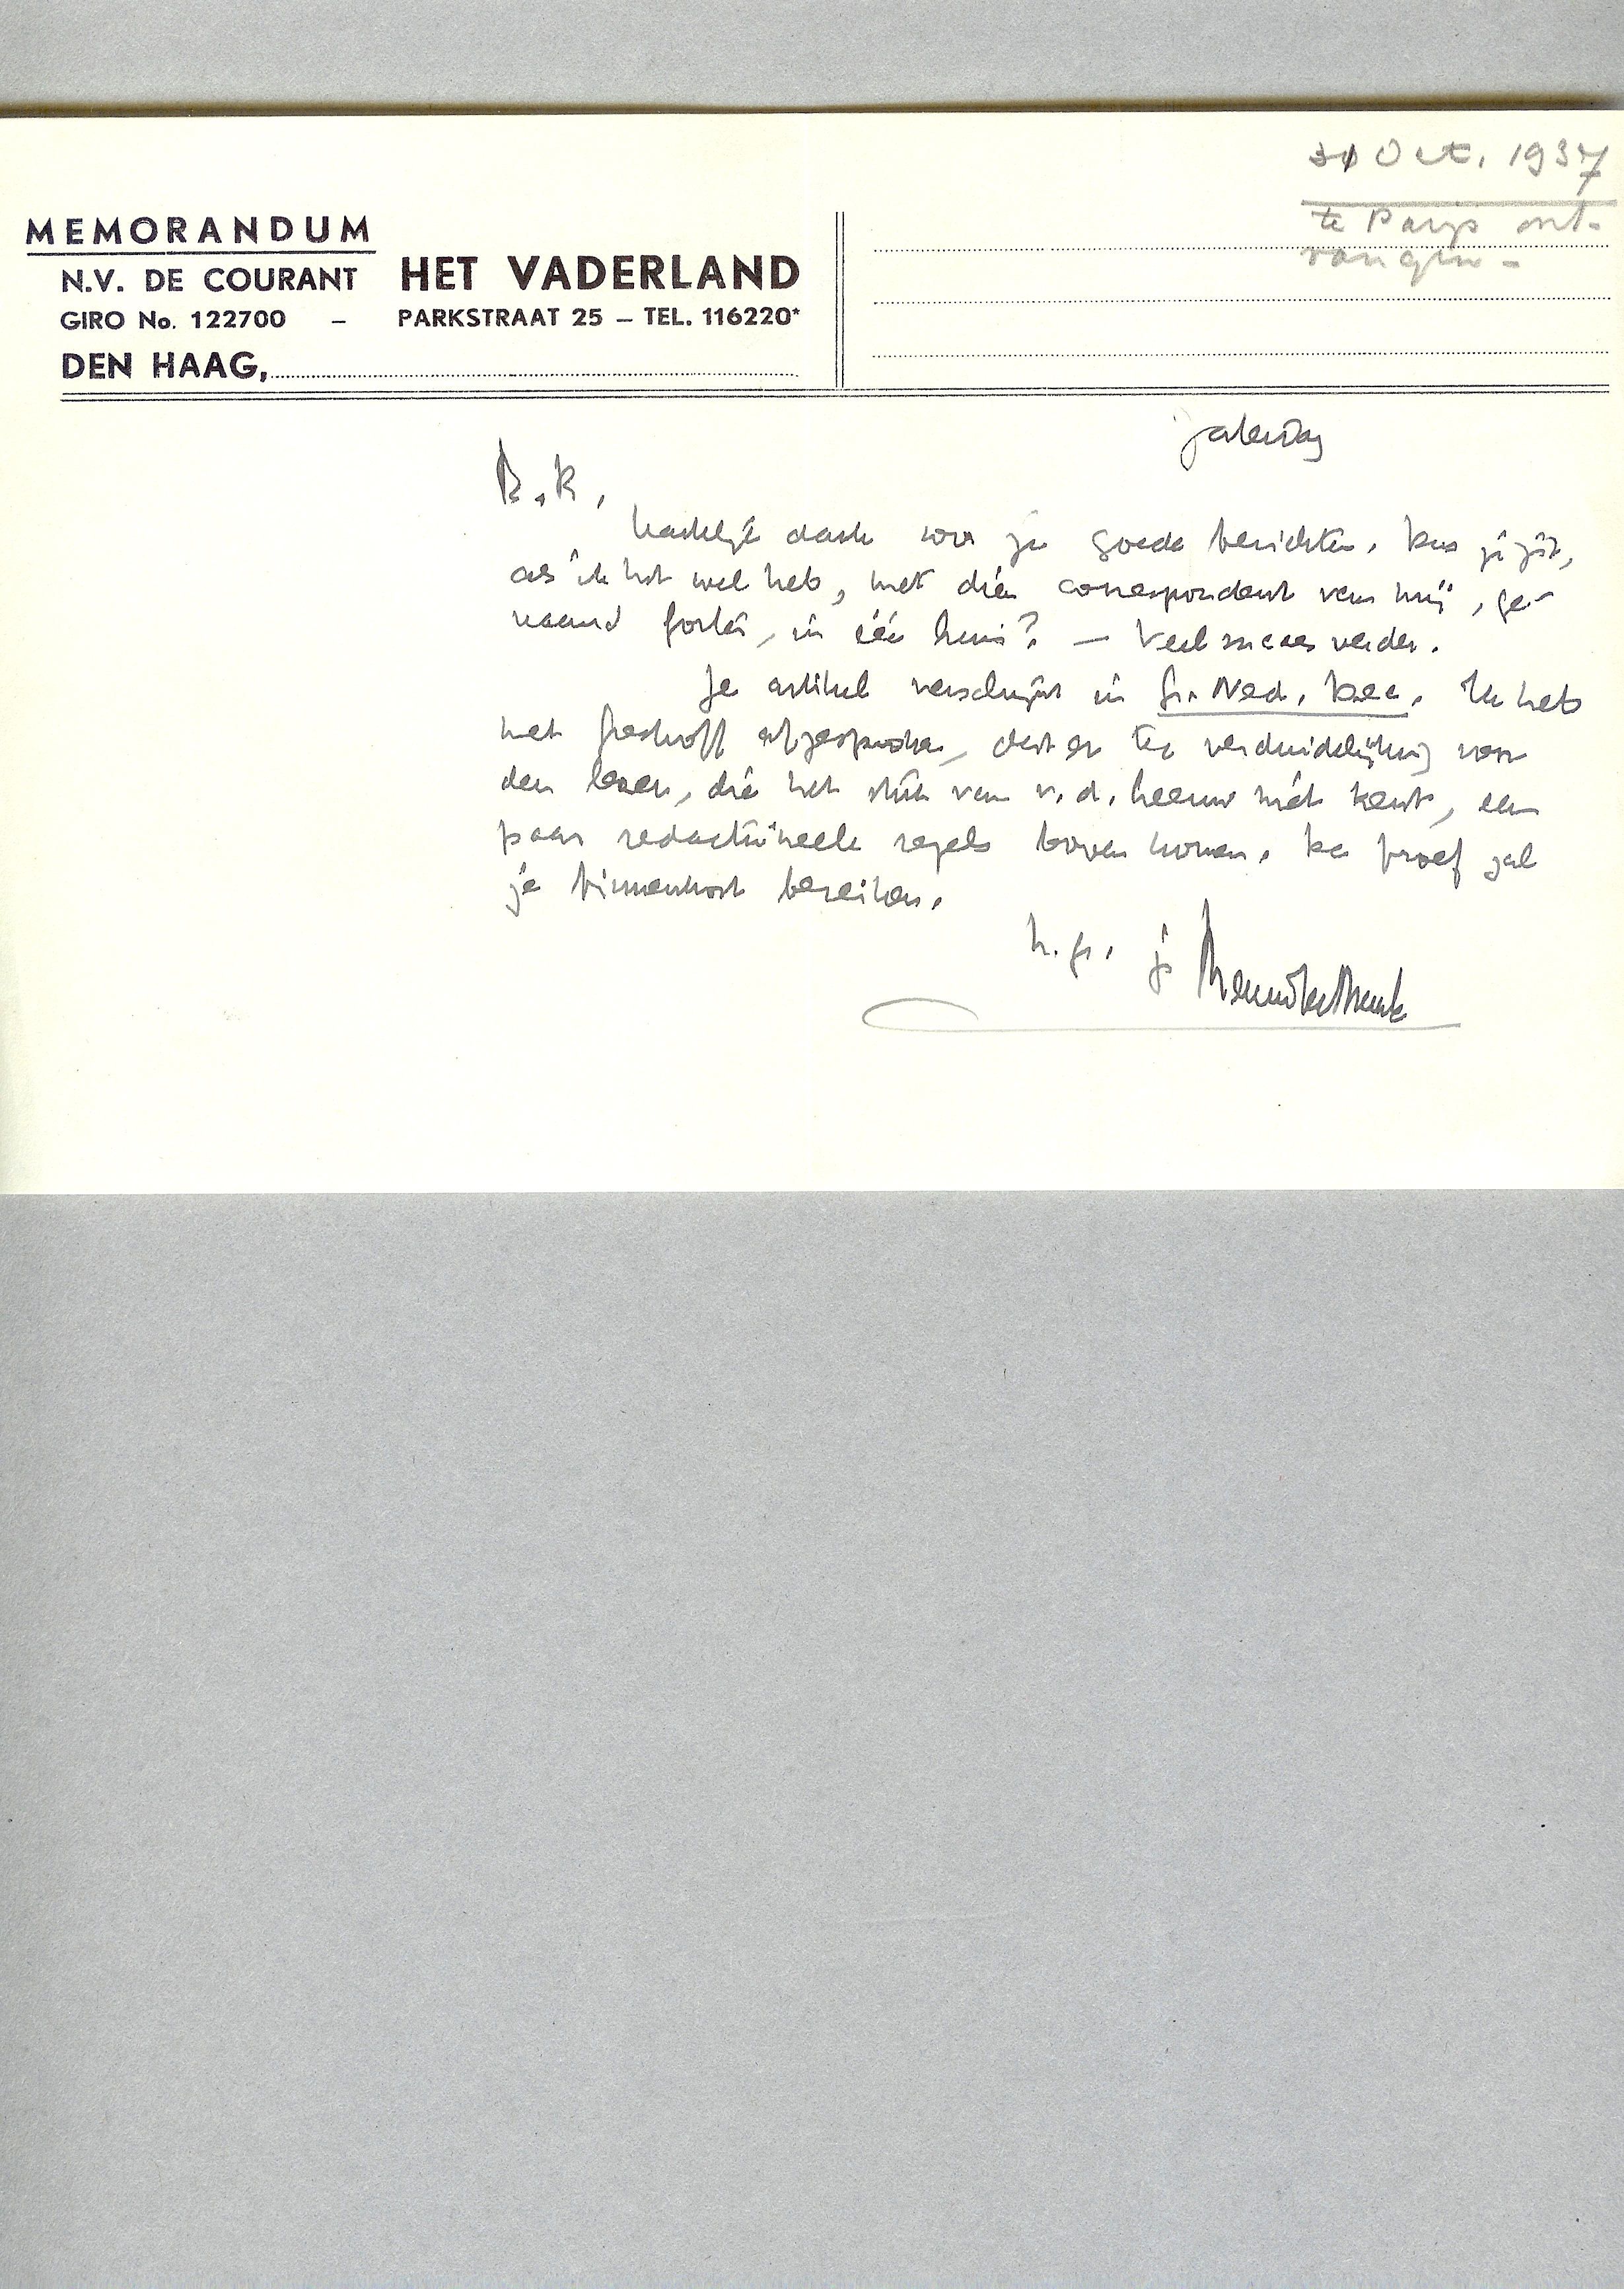 31 Oct. 1937
te Parijs ont-
vangen -
MEMORANDUM
N.V. DE COURANT HET VADERLAND
GIRO No. 122700 – PARKSTRAAT 25 – TEL. 116220*
DEN HAAG,
Zaterdag
B.K.,
Hartelijk dank voor je goede berichten. Den jij zit,
als ik het wel heb, met dien correspondent van mij, ge-
naamd in één huis? — Veel succes verder.
Je artikel verschijnt in Gr. Ned. Dec. Ik heb
met Greshoff afgesproken, dat er ter verduidelijking voor
den lezer, die het stuk van v.d. Leeuw niet kent, een
paar redactioneele regels boven komen. De proef zal
je binnenkort bereiken.
h.gr. je Menno ter Braak